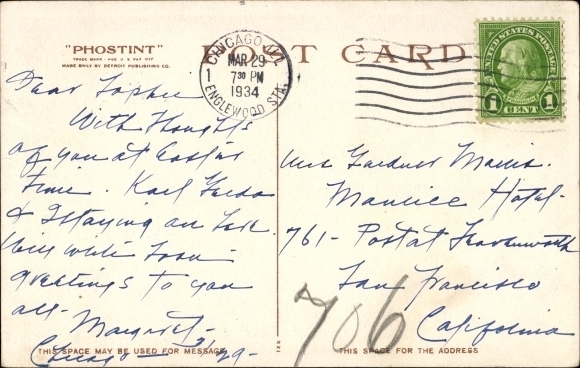 "PHOSTINT"
TRADE MARK - REG. U.S. PAT. OFF.
MADE ONLY BY DETROIT PUBLISHING CO.
POST CARD
CHICAGO, ILL.
1
MAR 29
7 30 PM
1934
ENGLEWOOD STA.
UNITED STATES POSTAGE
FRANKLIN
1 CENT 1
Dear Sophie
With thoughts
of you at Easter
time. Karl
& I staying on
Will write soon
greetings to you
all - Margaret -
Chicago - 3/29 -
Mrs Gardner Morris.
Maurice Hotel -
761 - Post at Leavenworth
San Francisco
California
706
THIS SPACE MAY BE USED FOR MESSAGE
THIS SPACE FOR THE ADDRESS